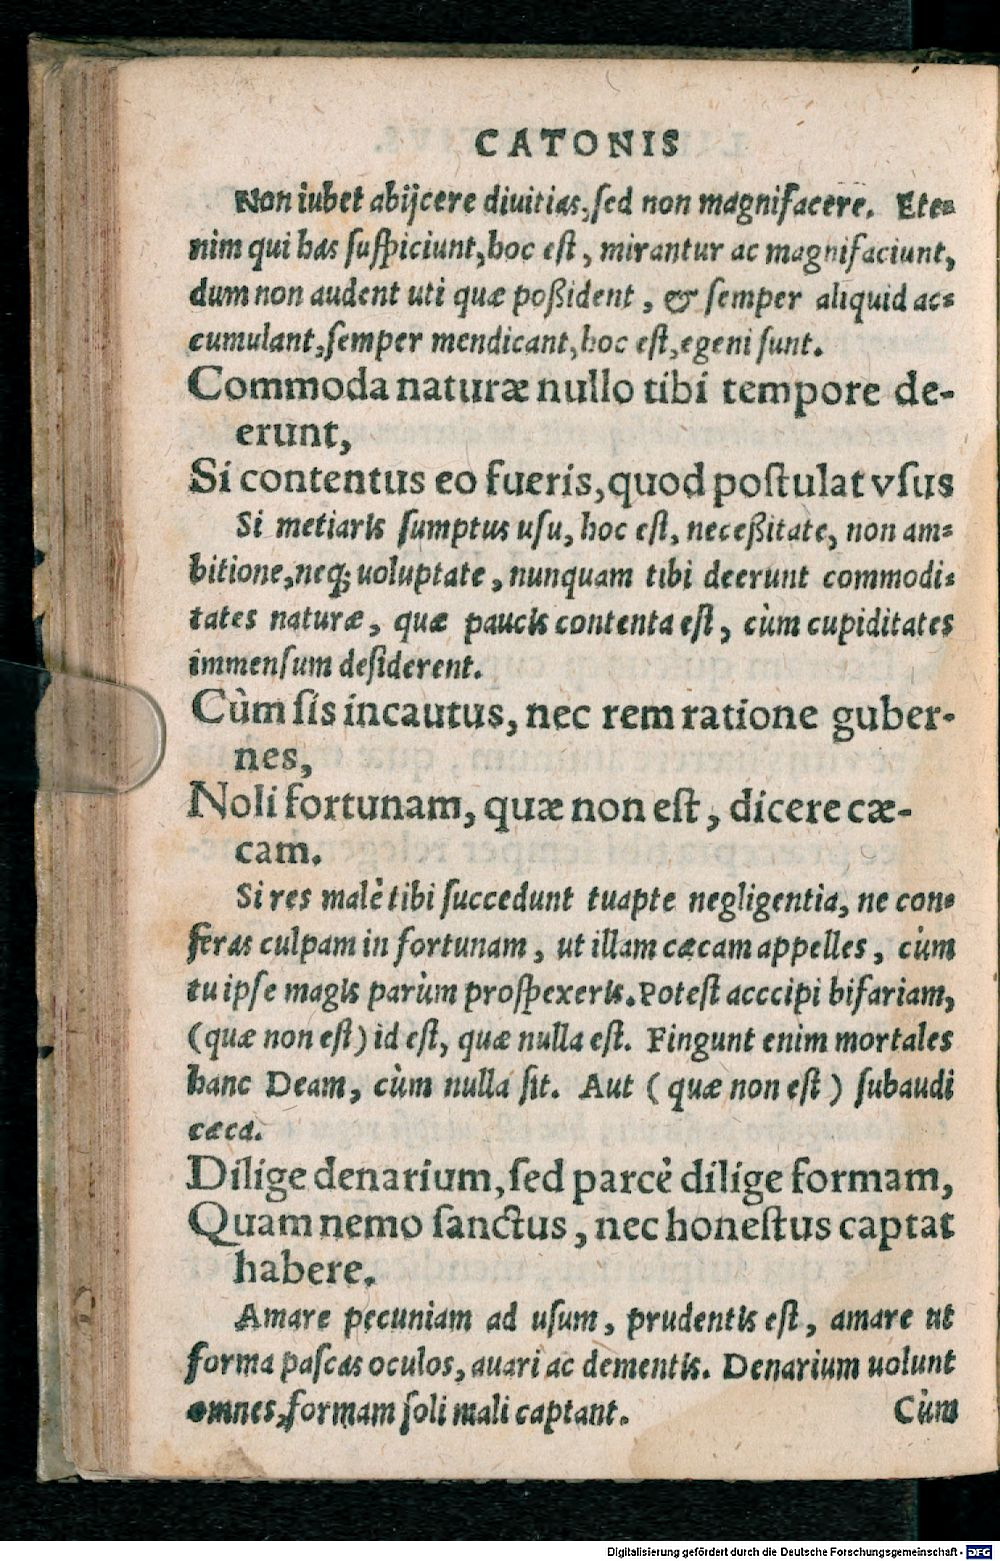 CATONIS
Non iubet abijcere diuitias, sed non magnifacere. Ete=
nim qui has suspiciunt, hoc est, mirantur ac magnifaciunt,
dum non audent uti quæ poßident, & semper aliquid ac=
cumulant, semper mendicant, hoc est, egeni sunt.
Commoda naturæ nullo tibi tempore de-
erunt,
Si contentus eo fueris, quod postulat vsus
Si metiaris sumptus usu, hoc est, neceßitate, non am=
bitione, neq; uoluptate, nunquam tibi deerunt commodi=
tates naturæ, quæ paucis contenta est, cùm cupiditates
immensum desiderent.
Cùm sis incautus, nec rem ratione guber-
nes,
Noli fortunam, quæ non est, dicere cæ-
cam.
Si res malè tibi succedunt tuapte negligentia, ne con=
feras culpam in fortunam, ut illam cæcam appelles, cùm
tu ipse magis parùm prospexeris. Potest acccipi bifariam,
(quæ non est) id est, quæ nulla est. Fingunt enim mortales
hanc Deam, cùm nulla sit. Aut (quæ non est) subaudi
cæca.
Dilige denarium, sed parcè dilige formam,
Quam nemo sanctus, nec honestus captat
habere.
Amare pecuniam ad usum, prudentis est, amare ut
forma pascas oculos, auari ac dementis. Denarium uolunt
omnes, formam soli mali captant. Cùm
Digitalisierung gefördert durch die Deutsche Forschungsgemeinschaft - DFG